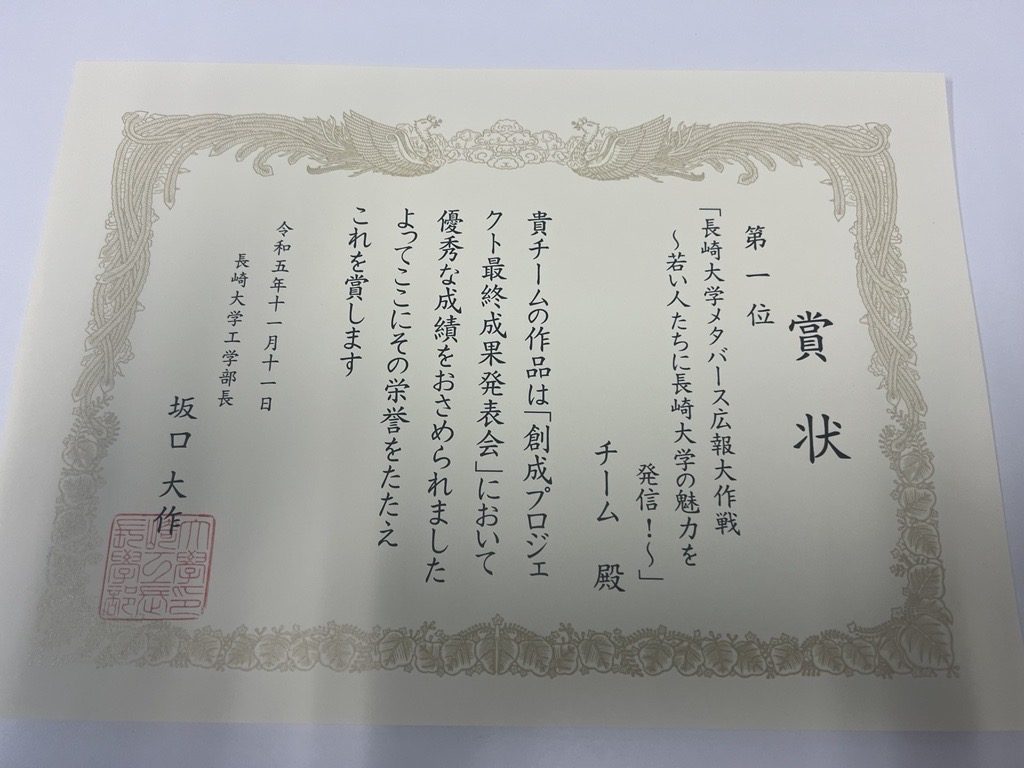 賞状
第一位
「長崎大学メタバース広報大作戦
~若い人たちに長崎大学の魅力を
発信!~」
チーム 殿
貴チームの作品は「創成プロジェ
クト最終成果発表会」において
優秀な成績をおさめられました
よってここにその栄誉をたたえ
これを賞します
令和五年十一月十一日
長崎大学工学部長
坂口大作